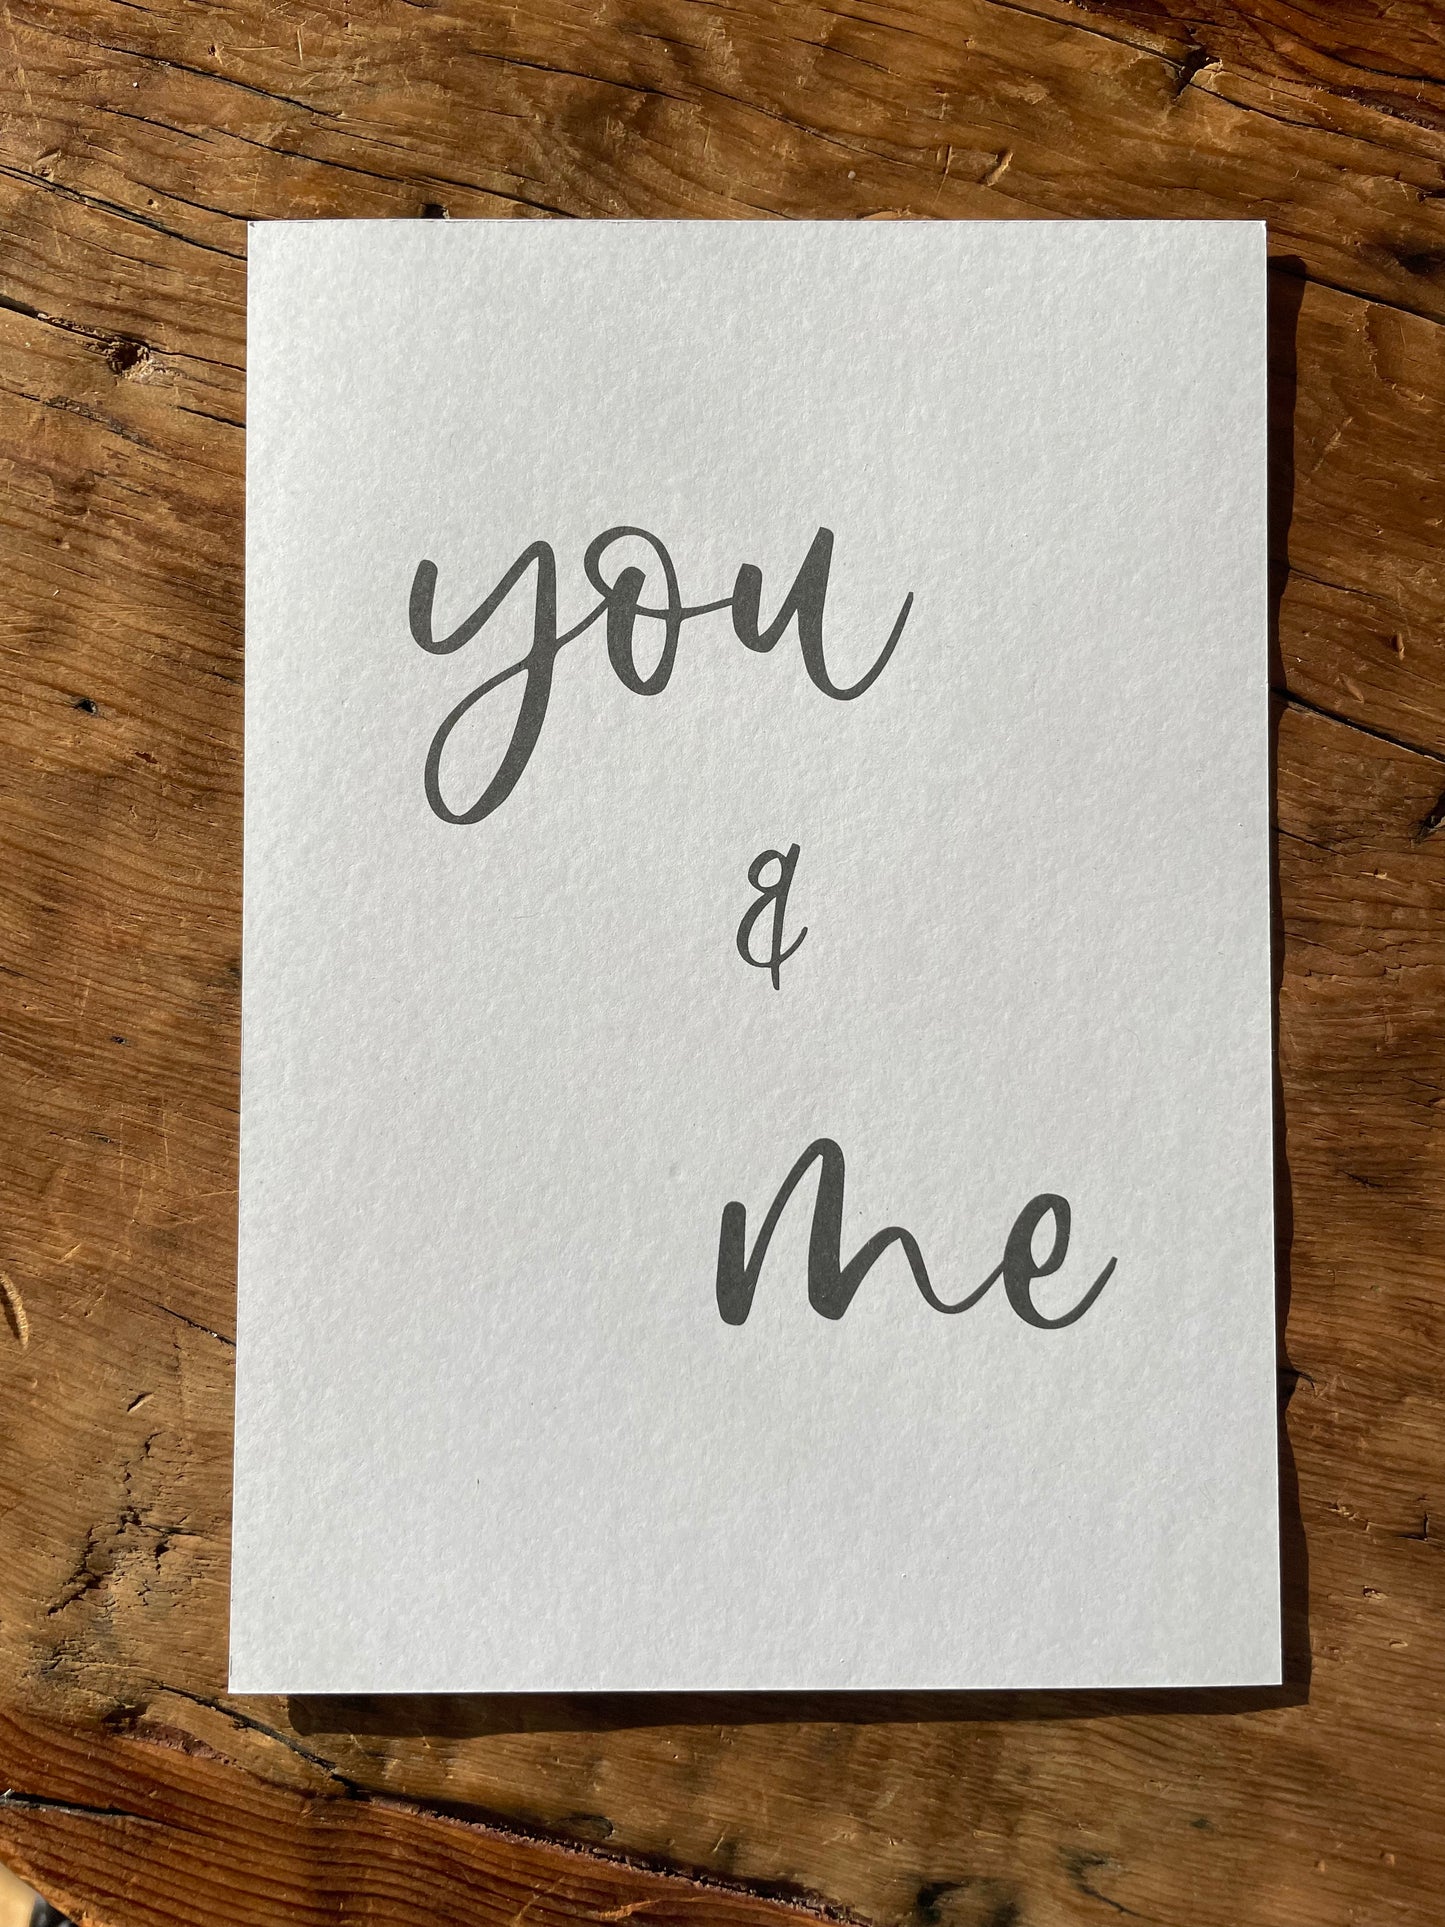 you
&
me